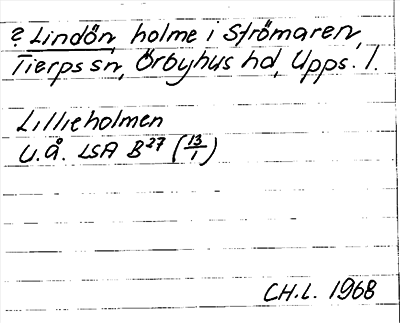 ? Lindön, holme i Strömaren,
Tierps sn, Örbyhus hd, Upps. l.
Lillieholmen
U.Å. LSA B27 (13/1)
CH.L. 1968